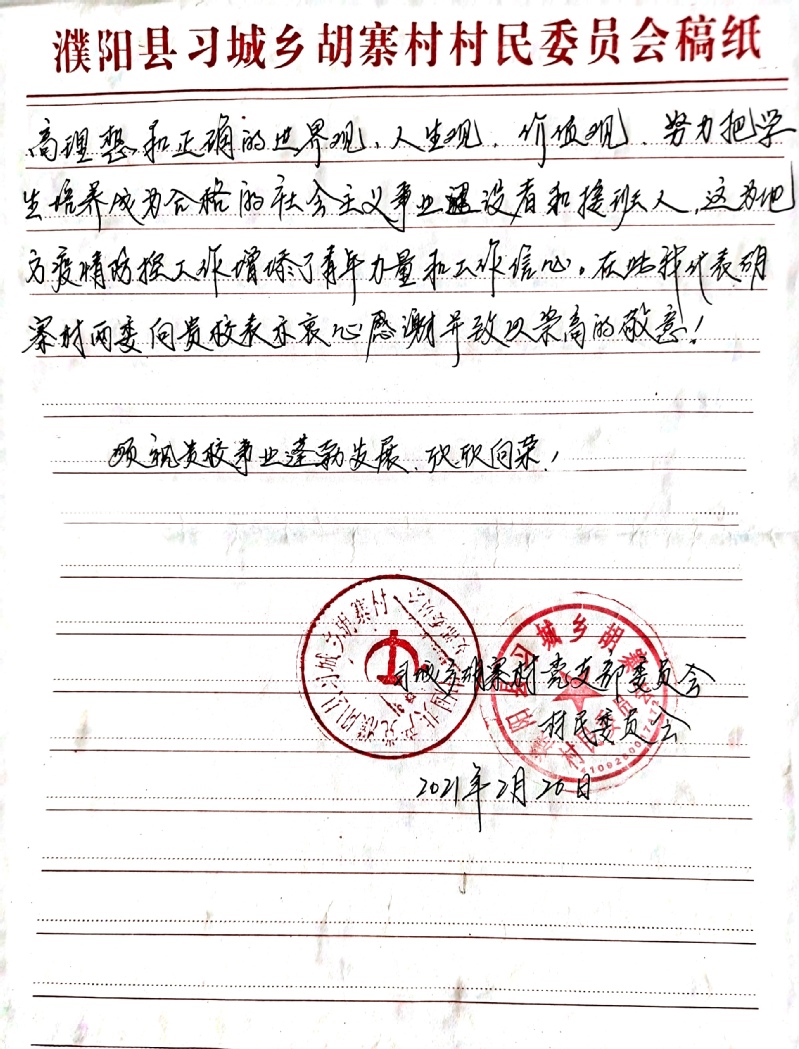 濮阳县习城乡胡寨村村民委员会稿纸
高理想和正确的世界观、人生观、价值观、努力把学
生培养成为合格的社会主义事业建设者和接班人,这为地
方疫情防控工作增添了青年力量和工作信心。在此我代表胡
寨村两委向贵校表示衷心感谢并致以崇高的敬意!
顺祝贵校事业蓬勃发展、欣欣向荣!
习城乡胡寨村党支部委员会
村民委员会
2021年2月26日